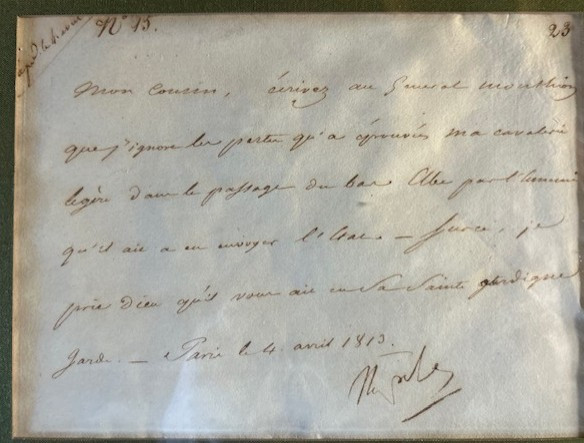 N° 15.
23
Mon cousin, écrivez au General Monthion
que j'ignore les pertes qu'a éprouvés ma cavalerie
legère dans le passage du bas Elbe par l'ennemi
qu'il ait a en envoyer l'état — Sur ce, je
prie Dieu qu'il vous ait en Sa Sainte et digne
garde. — Paris le 4 avril 1813.